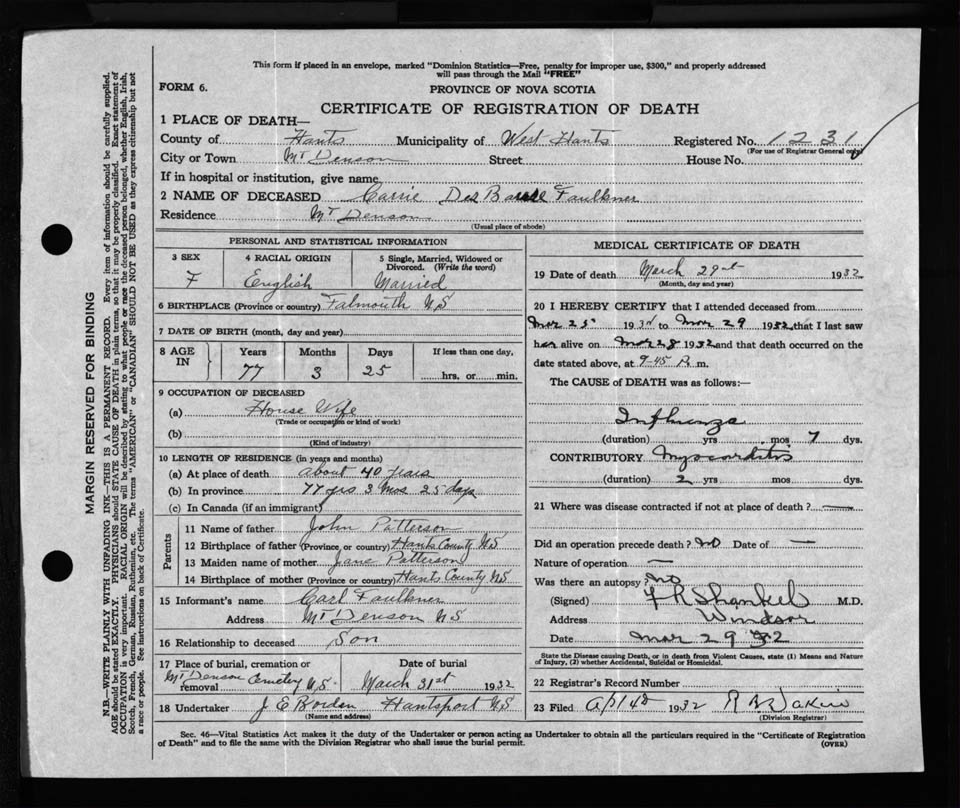 This form if placed in an envelope, marked "Dominion Statistics—Free, penalty for improper use, $300," and properly addressed
will pass through the Mail "FREE"
FORM 6.
PROVINCE OF NOVA SCOTIA
CERTIFICATE OF REGISTRATION OF DEATH
1 PLACE OF DEATH—
County of Hants Municipality of West Hants Registered No. 1231
(For use of Registrar General only)
City or Town Mt Denson Street House No.
If in hospital or institution, give name
2 NAME OF DECEASED Carrie Faulkner
Residence Mt Denson
(Usual place of abode)
PERSONAL AND STATISTICAL INFORMATION
3 SEX 4 RACIAL ORIGIN 5 Single, Married, Widowed or
Divorced. (Write the word)
F English Married
6 BIRTHPLACE (Province or country) Falmouth N S
7 DATE OF BIRTH (month, day and year)
8 AGE IN Years Months Days If less than one day,
77 3 25 hrs. or min.
9 OCCUPATION OF DECEASED
(a) House Wife
(Trade or occupation or kind of work)
(b)
(Kind of industry)
10 LENGTH OF RESIDENCE (in years and months)
(a) At place of death about 40 years
(b) In province 77 yrs 3 mos 25 days
(c) In Canada (if an immigrant)
Parents
11 Name of father John Patterson
12 Birthplace of father (Province or country) Hants County NS
13 Maiden name of mother Jane Patterson
14 Birthplace of mother (Province or country) Hants County NS
15 Informant's name Carl Faulkner
Address Mt Denson N S
16 Relationship to deceased Son
17 Place of burial, cremation or Date of burial
removal Mt Denson Cemetery N.S. March 31st 1932
18 Undertaker J E Borden Hantsport N S
(Name and address)
MEDICAL CERTIFICATE OF DEATH
19 Date of death March 29 1932
(Month, day and year)
20 I HEREBY CERTIFY that I attended deceased from
Mar 25 193 to Mar 29 1932, that I last saw
her alive on Mar 28 1932 and that death occurred on the
date stated above, at 9-45 P. m.
The CAUSE OF DEATH was as follows:—
Influenza
(duration) yrs mos 7 dys.
CONTRIBUTORY Myocarditis
(duration) 2 yrs mos dys.
21 Where was disease contracted if not at place of death? —
Did an operation precede death? No Date of —
Nature of operation —
Was there an autopsy? No
(Signed) F R Shankel M.D.
Address Windsor
Date Mar 29 32
State the Disease causing Death, or in death from Violent Causes, state (1) Means and Nature
of Injury, (2) whether Accidental, Suicidal or Homicidal.
22 Registrar's Record Number
23 Filed 1932
(Division Registrar)
Sec. 46—Vital Statistics Act makes it the duty of the Undertaker or person acting as Undertaker to obtain all the particulars required in the "Certificate of Registration
of Death" and to file the same with the Division Registrar who shall issue the burial permit. (OVER)
MARGIN RESERVED FOR BINDING
N.B.—WRITE PLAINLY WITH UNFADING INK—THIS IS A PERMANENT RECORD. Every item of information should be carefully supplied.
AGE should be stated EXACTLY. PHYSICIANS should STATE CAUSE OF DEATH in plain terms, so that it may be properly classified. Exact statement of
OCCUPATION is very important. RACIAL ORIGIN will be described by stating to what people or race the deceased person belonged, whether English, Irish,
Scotch, French, German, Russian, Ruthenian, etc. The terms "AMERICAN" or "CANADIAN" SHOULD NOT BE USED as they express citizenship but not
a race or people. See instructions on back of Certificate.